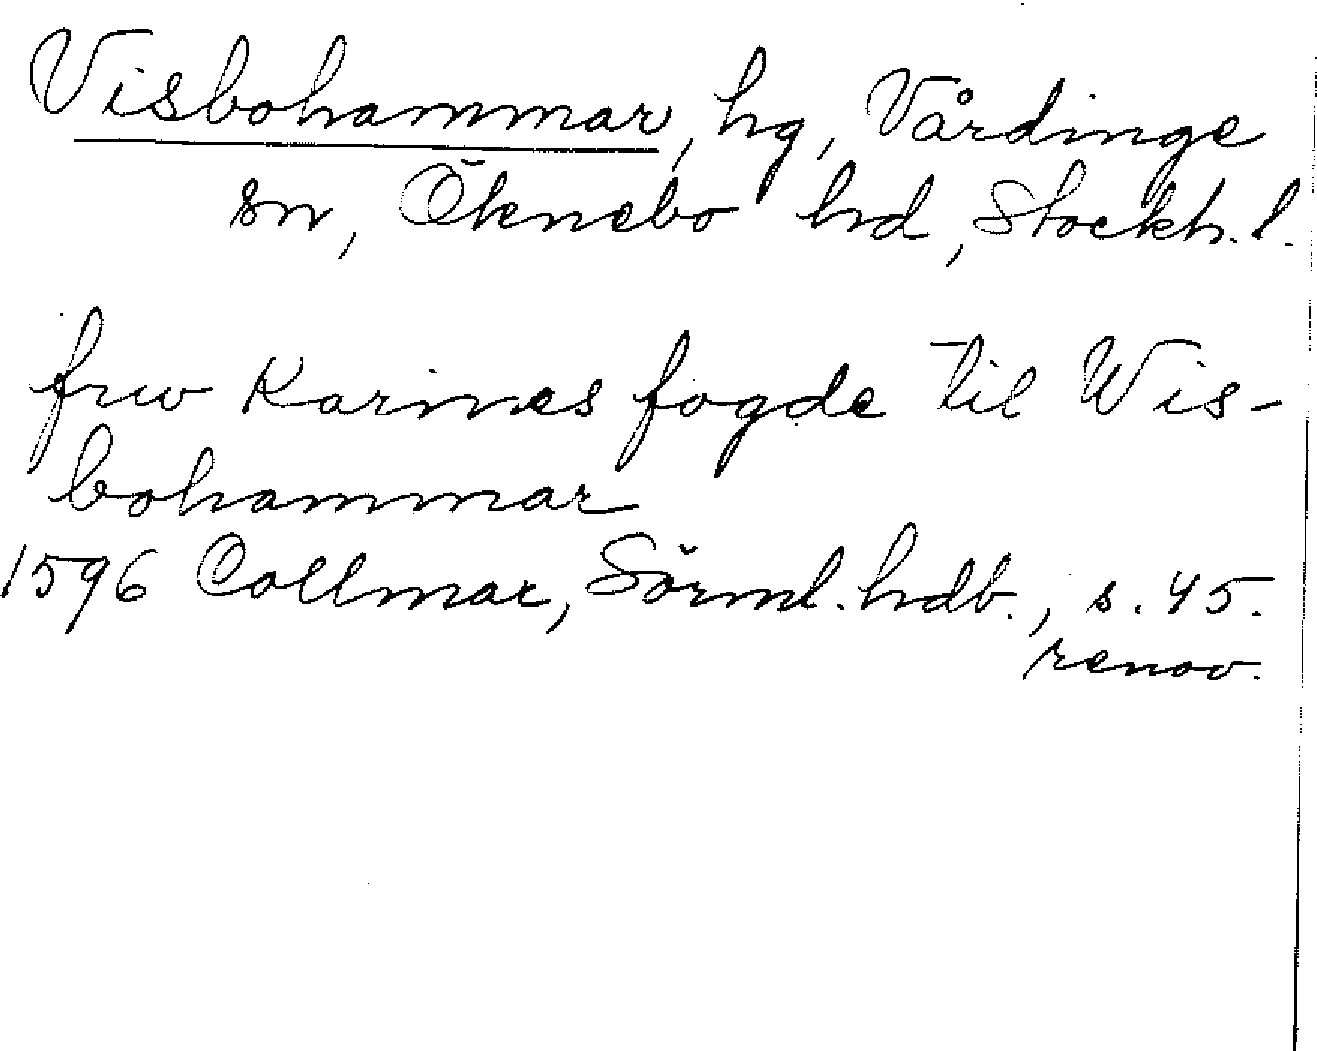 Visbohammar, hg, Vårdinge
sn, Öknebo hd, Stockh. l.
frw Karines fogde til Wis-
bohammar
1596 Collmar, Sörml. hdb., s. 45.
renov.